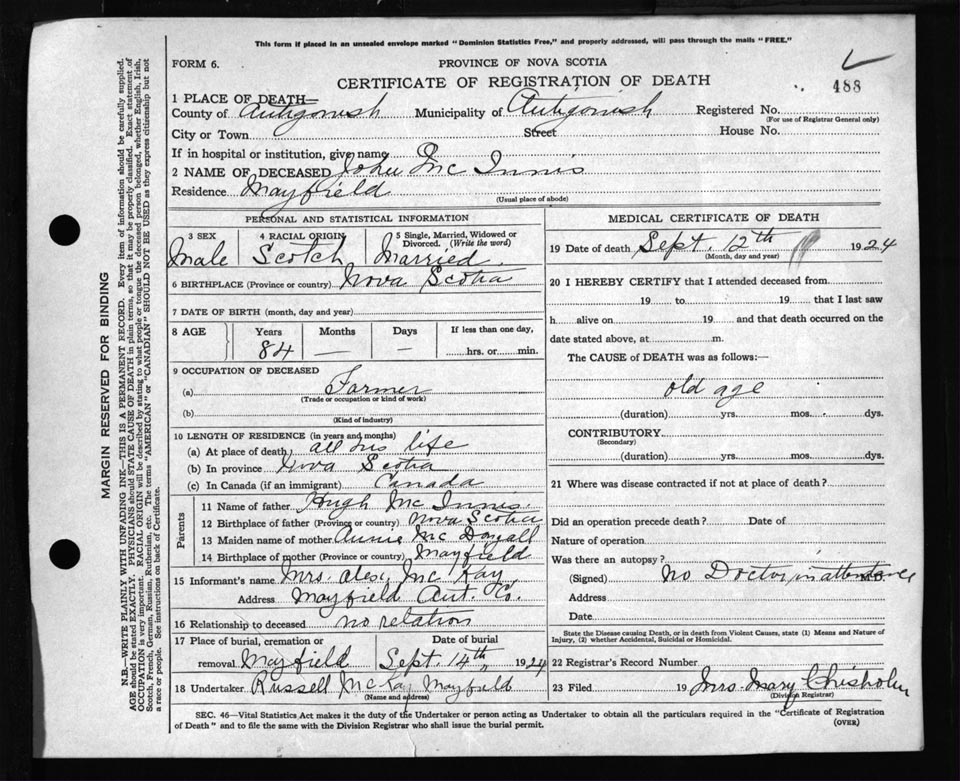 This form if placed in an unsealed envelope marked "Dominion Statistics Free," and properly addressed, will pass through the mails "FREE."
FORM 6.
PROVINCE OF NOVA SCOTIA
CERTIFICATE OF REGISTRATION OF DEATH
488
1 PLACE OF DEATH—
County of Antigonish Municipality of Antigonish Registered No.
(For use of Registrar General only)
City or Town Street House No.
If in hospital or institution, give name
2 NAME OF DECEASED John Mc Innis
Residence Mayfield
(Usual place of abode)
PERSONAL AND STATISTICAL INFORMATION
3 SEX 4 RACIAL ORIGIN 5 Single, Married, Widowed or Divorced. (Write the word)
Male Scotch Married
6 BIRTHPLACE (Province or country) Nova Scotia
7 DATE OF BIRTH (month, day and year)
8 AGE Years Months Days If less than one day,
84 — — hrs. or min.
9 OCCUPATION OF DECEASED
(a) Farmer
(Trade or occupation or kind of work)
(b)
(Kind of industry)
10 LENGTH OF RESIDENCE (in years and months)
(a) At place of death all his life
(b) In province Nova Scotia
(c) In Canada (if an immigrant) Canada
Parents
11 Name of father Hugh Mc Innis
12 Birthplace of father (Province or country) Nova Scotia
13 Maiden name of mother Annie Mc Dougall
14 Birthplace of mother (Province or country) Mayfield
15 Informant's name Mrs. Alex. Mc Kay
Address Mayfield Ant. Co.
16 Relationship to deceased no relation
17 Place of burial, cremation or removal. Mayfield
Date of burial Sept. 14th 1924
18 Undertaker Russell McKay Mayfield
(Name and address)
MEDICAL CERTIFICATE OF DEATH
19 Date of death Sept. 12th 1924
(Month, day and year)
20 I HEREBY CERTIFY that I attended deceased from
19 to 19 that I last saw
h alive on 19 and that death occurred on the
date stated above, at m.
The CAUSE of DEATH was as follows:—
old age
(duration) yrs. mos. dys.
CONTRIBUTORY
(Secondary)
(duration) yrs. mos. dys.
21 Where was disease contracted if not at place of death?
Did an operation precede death? Date of
Nature of operation
Was there an autopsy?
(Signed) No Doctor in attendance
Address
Date
State the Disease causing Death, or in death from Violent Causes, state (1) Means and Nature of
Injury, (2) whether Accidental, Suicidal or Homicidal.
22 Registrar's Record Number
23 Filed 19 Mrs. Mary Chisholm
(Division Registrar)
SEC. 46—Vital Statistics Act makes it the duty of the Undertaker or person acting as Undertaker to obtain all the particulars required in the "Certificate of Registration
of Death" and to file the same with the Division Registrar who shall issue the burial permit.
(OVER)
MARGIN RESERVED FOR BINDING
N.B.—WRITE PLAINLY WITH UNFADING INK—THIS IS A PERMANENT RECORD. Every item of information should be carefully supplied.
AGE should be stated EXACTLY. PHYSICIANS should STATE CAUSE OF DEATH in plain terms, so that it may be properly classified. Exact statement of
OCCUPATION is very important. RACIAL ORIGIN will be described by stating to what people or tongue the deceased person belonged, whether English, Irish,
Scotch, French, German, Russian, Ruthenian, etc. The terms "AMERICAN" or "CANADIAN" SHOULD NOT BE USED as they express citizenship but not
a race or people. See instructions on back of Certificate.